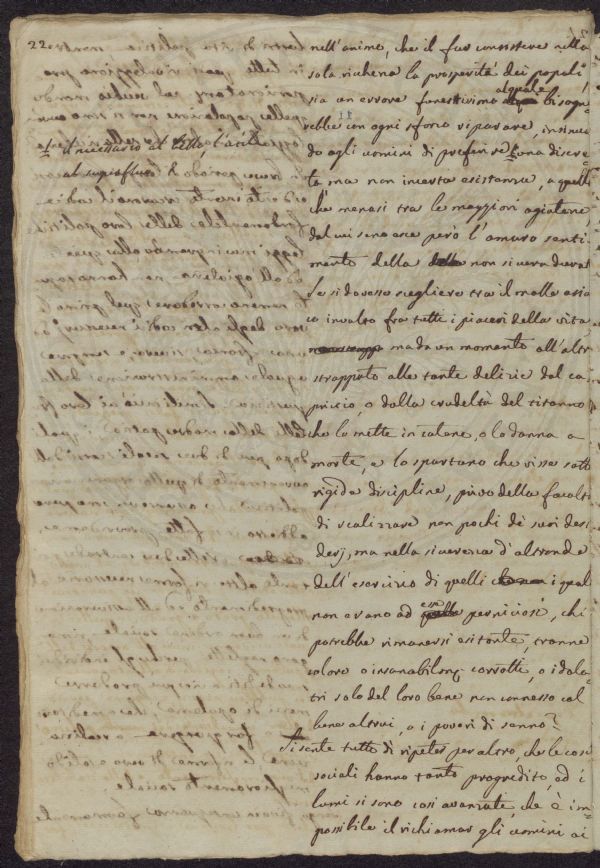 22.
nell'animo, che il far consistere nella
sola richezza la prosperità dei popoli
sia un errore funestissimo al quale bisogne
rebbe con ogni sforzo riparare, insinuan
do agli uomini di preferire una discre
ta ma non incerta esistenza, a quella
che menasi tra le maggiori agiatezze,
dal cui seno esce però l'amaro senti
mento della non sicura durata
Se si dovesse scegliere tra il molle asia
co involto fra tutti i piaceri della vita
ma da un momento all'altro
strappato alle tante delizie dal ca
priccio, o dalla crudeltà del tiranno
che lo mette in catene, o lo danna a
morte, e lo spartano che visse sotto
rigida disciplina, privo della facoltà
di realizzare non pochi de' suoi desi
derj, ma nella sicurezza d'altronde
dell'esercizio di quelli i quali
non erano ad essa perniciosi, chi
potrebbe rimanersi esitante, tranne
coloro o insanabilmente corrotti, o idola
tri solo del loro bene non connesso col
bene altrui, o i poveri di senno?
Si sente tutto dì ripeter per altro, che le cose
sociali hanno tanto progredito, ed i
lumi si sono così avanzati, che è im
possibile il richiamar gli uomini ai
il necessario al letto, l'utile
al superfluo